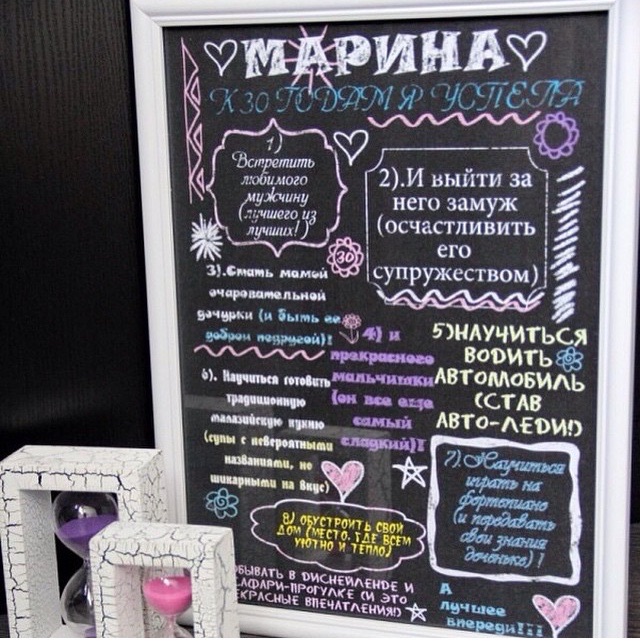 МАРИНА
К 30 ГОДАМ Я УСПЕЛА
1)
Встретить
любимого
мужчину
(лучшего из
лучших!)
2).И выйти за
него замуж
(осчастливить
его
супружеством)
30
3).Стать мамой
очаровательной
дочурки (и быть ее
доброй подругой)!
4) и
прекрасного
мальчишки
(он все еще
самый
сладкий)!
5)НАУЧИТЬСЯ
ВОДИТЬ
АВТОМОБИЛЬ
(СТАВ
АВТО-ЛЕДИ!)
6). Научиться готовить
традиционную
малазийскую кухню
(супы с невероятными
названиями, но
шикарными на вкус)
7).Научиться
играть на
фортепиано
(и передавать
свои знания
доченьке)!
8) ОБУСТРОИТЬ СВОЙ
ДОМ (МЕСТО, ГДЕ ВСЕМ
УЮТНО И ТЕПЛО)
ОБЫВАТЬ В ДИСНЕЙЛЕНДЕ И
САФАРИ-ПРОГУЛКЕ (И ЭТО
КРАСНЫЕ ВПЕЧАТЛЕНИЯ!)
А
лучшее
впереди!!!